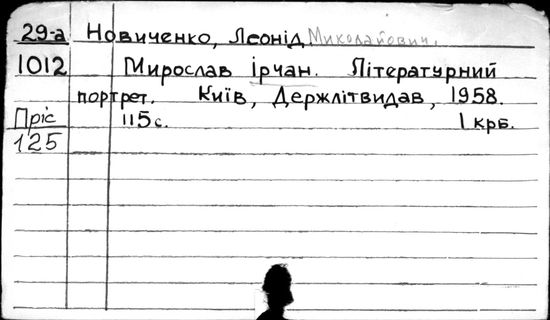 29-а Новиченко, Леонід Миколайович.
1012 Мирослав Ірчан. Літературний
портрет. Київ, Держлітвидав, 1958.
Пріс 115 с. 1 крб.
125